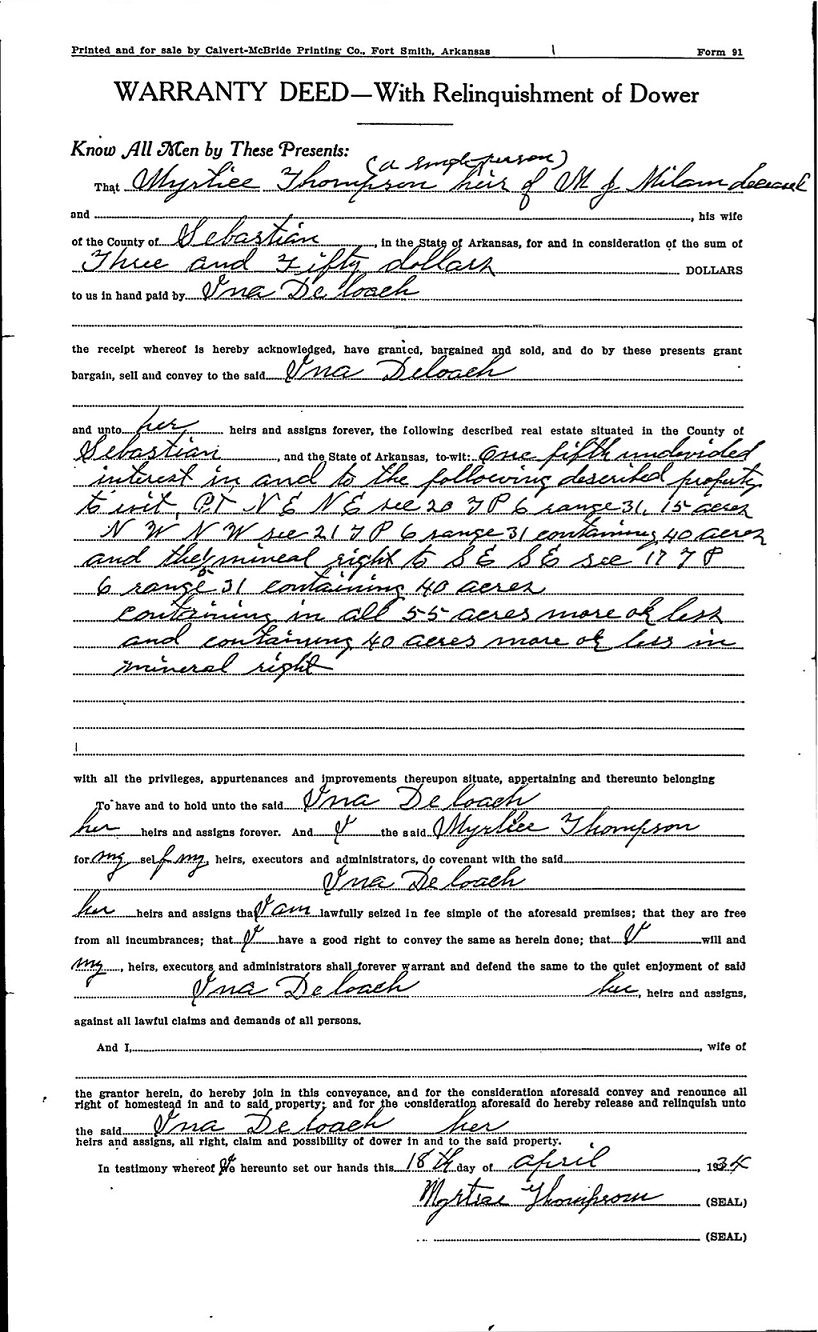 Printed and for sale by Calvert-McBride Printing Co., Fort Smith, Arkansas Form 91
WARRANTY DEED—With Relinquishment of Dower
Know All Men by These Presents:
(a single person)
That Myrtiee Thompson heir of M J Milam deceased
and , his wife
of the County of Sebastian , in the State of Arkansas, for and in consideration of the sum of
Three and Fifty dollars DOLLARS
to us in hand paid by Ina De loach
the receipt whereof is hereby acknowledged, have granted, bargained and sold, and do by these presents grant
bargain, sell and convey to the said Ina Deloach
and unto her heirs and assigns forever, the following described real estate situated in the County of
Sebastian , and the State of Arkansas, to-wit: One fifth undevided
interest in and to the following described property
to wit, PT N E N E sec 20 T P 6 range 31, 15 acres
N W N W sec 21 T P 6 range 31 containing 40 acres
and the mineal right to S E S E sec 17 T P
6 range 31 containing 40 acres
containing in all 55 acres more or less
and containing 40 acres more or less in
mineral right
with all the privileges, appurtenances and improvements thereupon situate, appertaining and thereunto belonging
To have and to hold unto the said Ina De loach
her heirs and assigns forever. And I the said Myrtiee Thompson
for my self my, heirs, executors and administrators, do covenant with the said
Ina De loach
her heirs and assigns that I am lawfully seized in fee simple of the aforesaid premises; that they are free
from all incumbrances; that I have a good right to convey the same as herein done; that I will and
my , heirs, executors and administrators shall forever warrant and defend the same to the quiet enjoyment of said
Ina De loach her, heirs and assigns,
against all lawful claims and demands of all persons.
And I, , wife of
the grantor herein, do hereby join in this conveyance, and for the consideration aforesaid convey and renounce all
right of homestead in and to said property; and for the consideration aforesaid do hereby release and relinquish unto
the said Ina De loach her
heirs and assigns, all right, claim and possibility of dower in and to the said property.
In testimony whereof I hereunto set our hands this 18th day of April , 1934
Myrtiee Thompson (SEAL)
(SEAL)